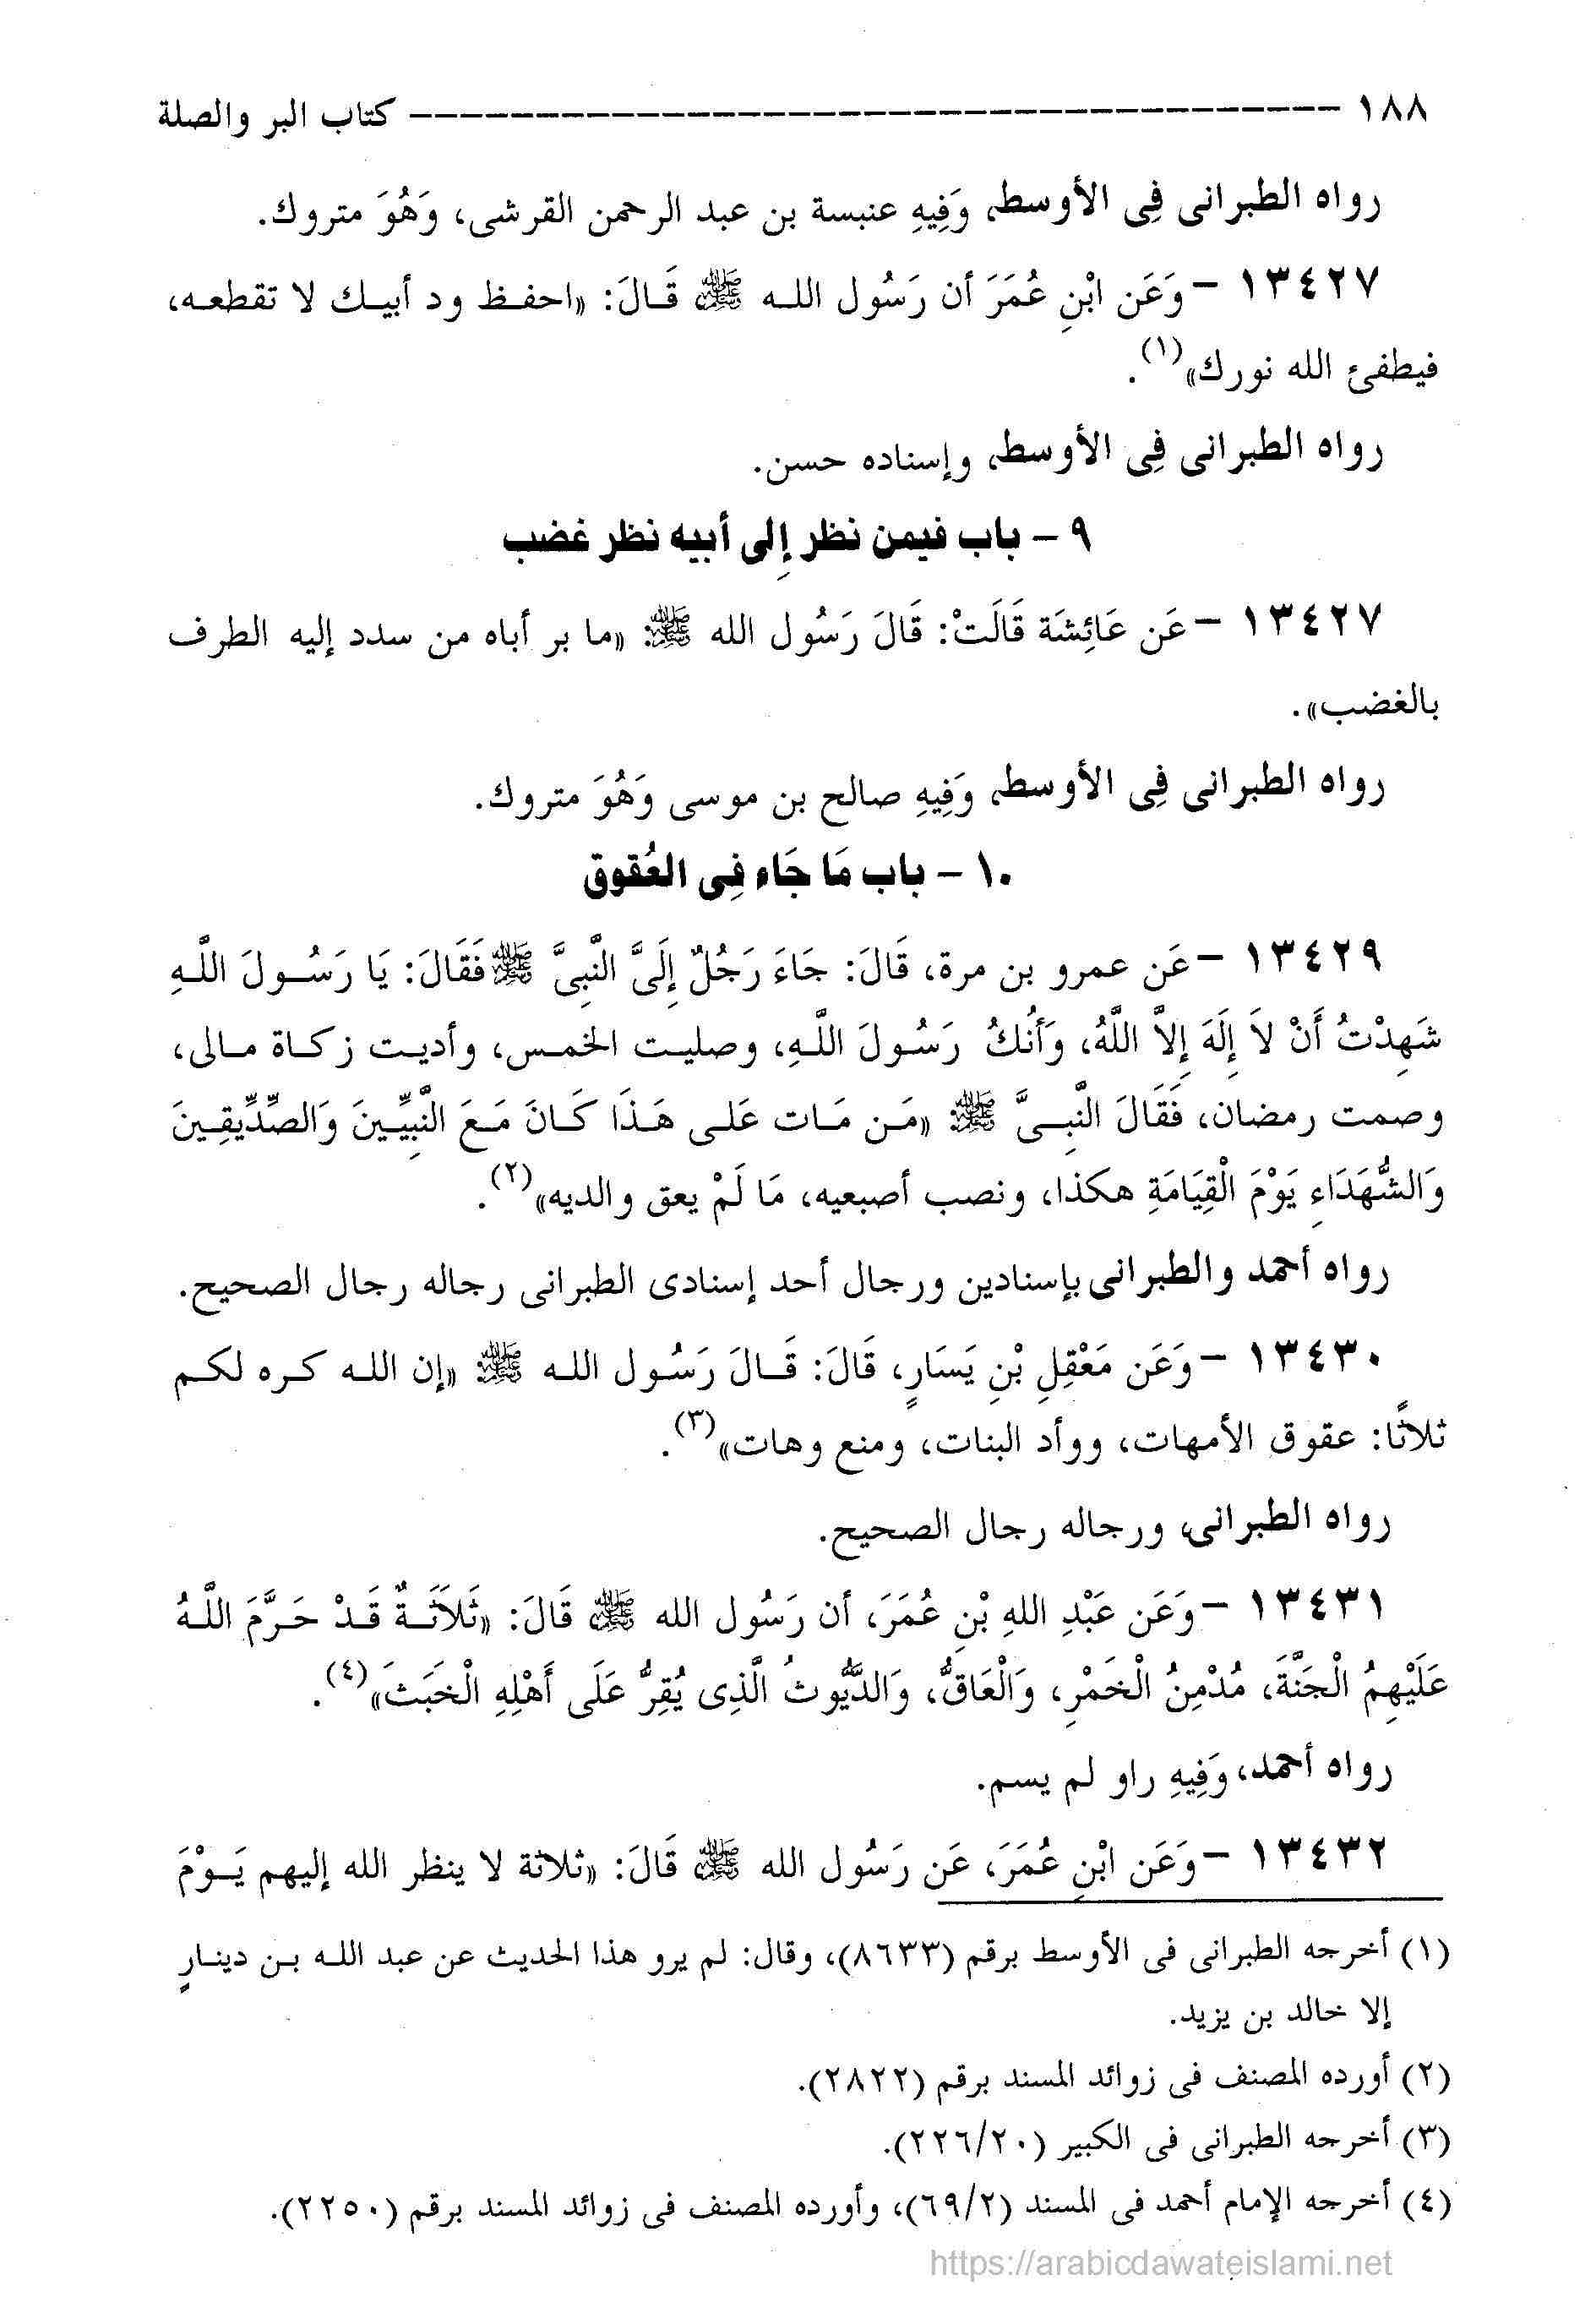 ١٨٨ ------------------------------------- كتاب البر والصلة
رواه الطبرانى فِى الأوسط، وَفِيهِ عنبسة بن عبد الرحمن القرشى، وَهُوَ متروك.
١٣٤٢٧ – وَعَن ابْنِ عُمَرَ أن رَسُول اللـه ﷺ قَـالَ: «احفـظ ود أبيـك لا تقطعـه،
فيطفئ الله نورك»(١).
رواه الطبرانى فِى الأوسط، وإسناده حسن.
٩ – باب فيمن نظر إِلى أبيه نظر غضب
١٣٤٢٧ – عَن عَائِشَة قَالَتْ: قَالَ رَسُول الله ﷺ: «ما بر أباه من سدد إليه الطرف
بالغضب».
رواه الطبرانى فِى الأوسط، وَفِيهِ صالح بن موسى وَهُوَ متروك.
١٠ – باب مَا جَاء فِى العُقوق
١٣٤٢٩ – عَن عمرو بن مرة، قَالَ: جَاءَ رَجُلٌ إِلَىَّ النَّبِىَّ ﷺ فَقَالَ: يَا رَسُـولَ اللَّـهِ
شَهِدْتُ أَنْ لاَ إِلَهَ إِلاَّ اللَّهُ، وَأَنكُ رَسُـولَ اللَّـهِ، وصليـت الخمـس، وأديـت زكـاة مـالى،
وصمت رمضان، فَقَالَ النَّبِـىَّ ﷺ: «مَـن مَـات عَلـى هَـذَا كَـانَ مَـعَ النَّبِيِّـينَ وَالصِّدِّيقِـينَ
وَالشُّهَدَاءِ يَوْمَ الْقِيَامَةِ هكذا، ونصب أصبعيه، مَا لَمْ يعق والديه»(٢).
رواه أحمد والطبرانى بإسنادين ورجال أحد إسنادى الطبرانى رجاله رجال الصحيح.
١٣٤٣٠ – وَعَن مَعْقِلِ بْنِ يَسَارٍ، قَالَ: قَـالَ رَسُـول اللـه ﷺ: «إن اللـه كـره لكـم
ثلاثًا: عقوق الأمهات، ووأد البنات، ومنع وهات»(٣).
رواه الطبرانى، ورجاله رجال الصحيح.
١٣٤٣١ – وَعَن عَبْدِ اللهِ بْنِ عُمَرَ، أن رَسُول الله ﷺ قَالَ: «ثَلاَثَـةٌ قَـدْ حَـرَّمَ اللَّـهُ
عَلَيْهِمُ الْجَنَّةَ، مُدْمِنُ الْخَمْرِ، وَالْعَاقُّ، وَالدَّيُّوثُ الَّذِى يُقِرُّ عَلَى أَهْلِهِ الْخَبَثَ»(٤).
رواه أحمد، وَفِيهِ راو لم يسم.
١٣٤٣٢ – وَعَن ابْنِ عُمَرَ، عَن رَسُول الله ﷺ قَالَ: «ثلاثة لا ينظر الله إليهم يَـوْمَ
(١) أخرجه الطبرانى فى الأوسط برقم (٨٦٣٣)، وقال: لم يرو هذا الحديث عن عبد اللـه بـن دينـارٍ
إلا خالد بن يزيد.
(٢) أورده المصنف فى زوائد المسند برقم (٢٨٢٢).
(٣) أخرجه الطبرانى فى الكبير (٢٢٦/٢٠).
(٤) أخرجه الإمام أحمد فى المسند (٦٩/٢)، وأورده المصنف فى زوائد المسند برقم (٢٢٥٠).
https://arabicdawateislami.net